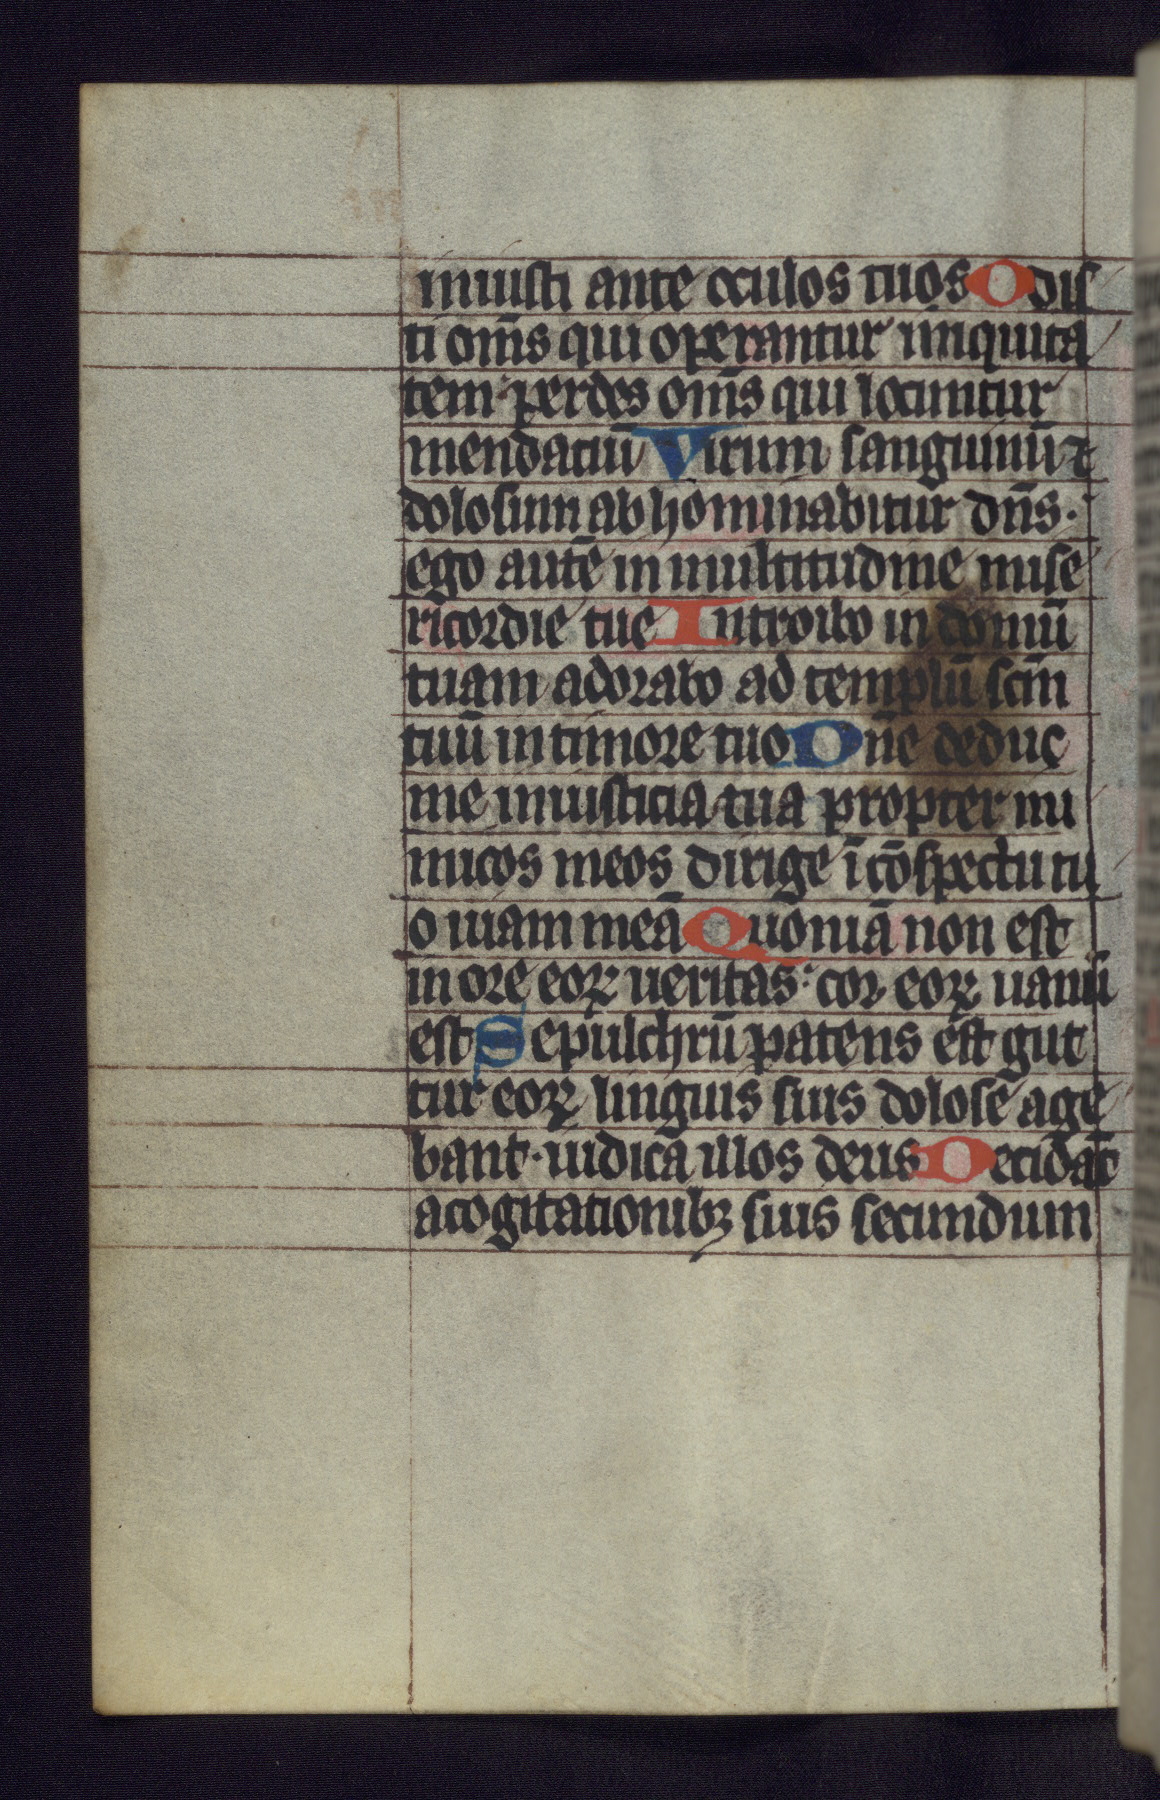 iniusti ante oculos tuos Odis
ti om̄s qui operantur iniquita
tem perdes om̄s qui locuntur
mendaciū Virum sanguinū ⁊
dolosum abhominabitur dn̄s.
ego autē in multitudine mise
ricordie tue Introibo in domū
tuam adorabo ad templū scm̄
tuū in timore tuo Dn̄e deduc
me in iusticia tua propter ini
micos meos dirige ī cōspectu tu
o uiam meā Quoniā non est
in ore eoꝝ ueritas: cor eoꝝ uanū
est Sepulchrū patens est gut
tur eoꝝ linguis suis dolose age
bant. iudica illos deus Decidāt
a cogitationibꝫ suis secundum